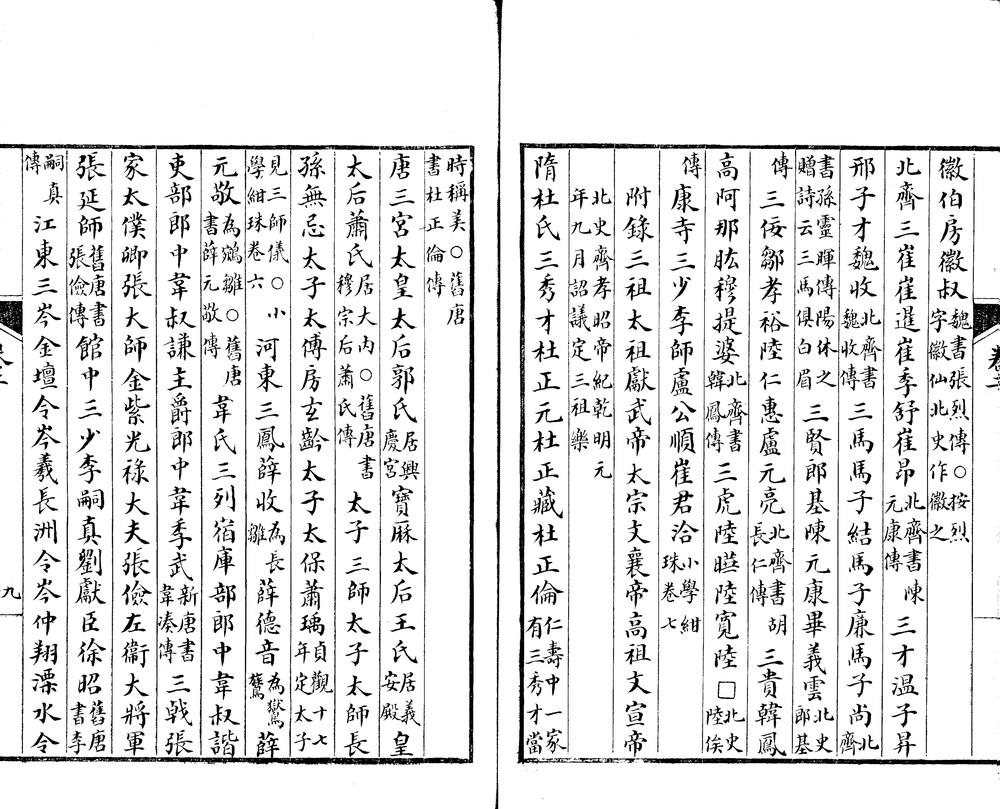 徽伯房徽叔魏書張烈傳○按烈字徽仙北史作徽之
北齊三崔崔暹崔季舒崔昂北齊書陳元康傳三才温子昇
邢子才魏收北齊書魏收傳三馬馬子結馬子廉馬子尚北齊
書孫靈暉傳陽休之贈詩云三馬俱白眉三賢郎基陳元康畢義雲北史郎基
傳三佞鄒孝裕陸仁惠盧元亮北齊書胡長仁傳三貴韓鳳
高阿那肱穆提婆北齊書韓鳳傳三虎陸㬢陸寬陸□北史陸俟
傳康寺三少李師盧公順崔君洽小學紺珠卷七
附錄三祖太祖獻武帝太宗文襄帝高祖文宣帝
北史齊孝昭帝紀乾明元年九月詔議定三祖樂
隋杜氏三秀才杜正元杜正藏杜正倫仁壽中一家有三秀才當
時稱美○舊唐書杜正倫傳
唐三宮太皇太后郭氏居興慶宮寶厤太后王氏居義安殿皇
太后蕭氏居大内○舊唐書穆宗后蕭氏傳太子三師太子太師長
孫無忌太子太傅房玄齡太子太保蕭瑀貞觀十七年定太子
見三師儀○小學紺珠卷六河東三鳳薛收為長雛薛德音為鸑鷟薛
元敬為鵷雛○舊唐書薛元敬傳韋氏三列宿庫部郎中韋叔諧
吏部郎中韋叔謙主爵郎中韋季武新唐書韋湊傳三戟張
家太僕卿張大師金紫光祿大夫張儉左衞大將軍
張延師舊唐書張儉傳館中三少李嗣真劉獻臣徐昭舊唐書李
嗣真傳江東三岑金壇令岑羲長洲令岑仲翔溧水令
九